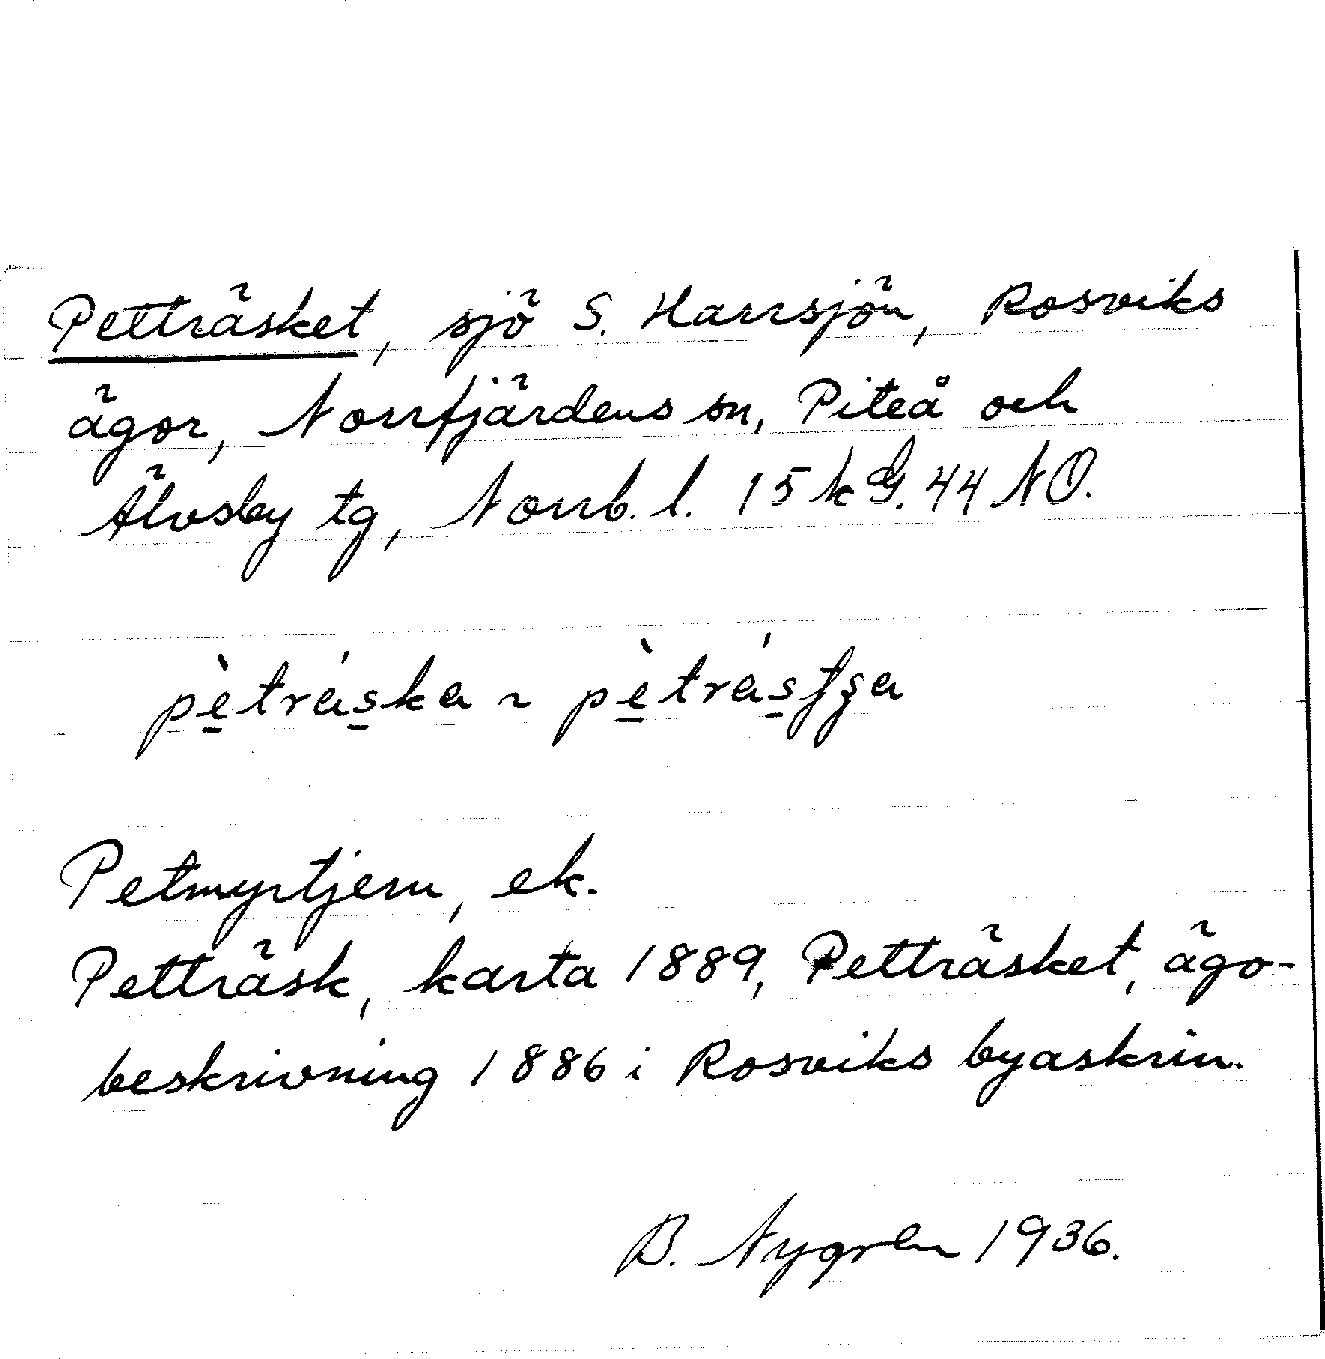 Petträsket, sjö S. Harrsjön, Rosviks
ägor, Norrfjärdens sn, Piteå och
Älvsby tg, Norrb. l. 15 k G. 44 NO.
pètráska ~ pètrásʃʂa
Petmyrtjern, ek.
Petträsk, karta 1889, Petträsket, ägo-
beskrivning 1886 i Rosviks byaskrin.
B. Nygren 1936.